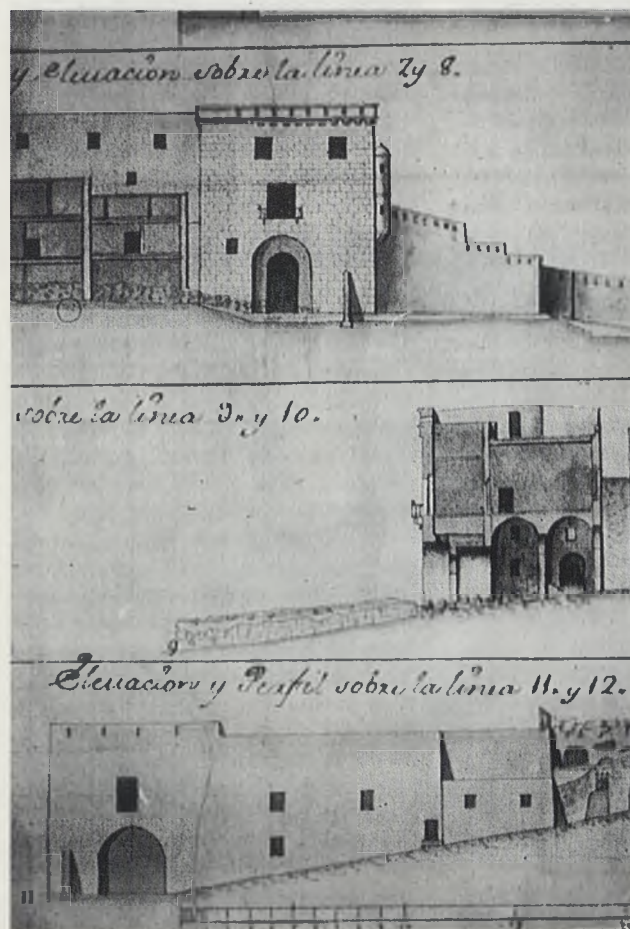 y eleuacion sobre la linea 7 y 8.
sobre la linea 9. y 10.
9
Eleuacion y Perfil sobre la linea 11. y 12.
11